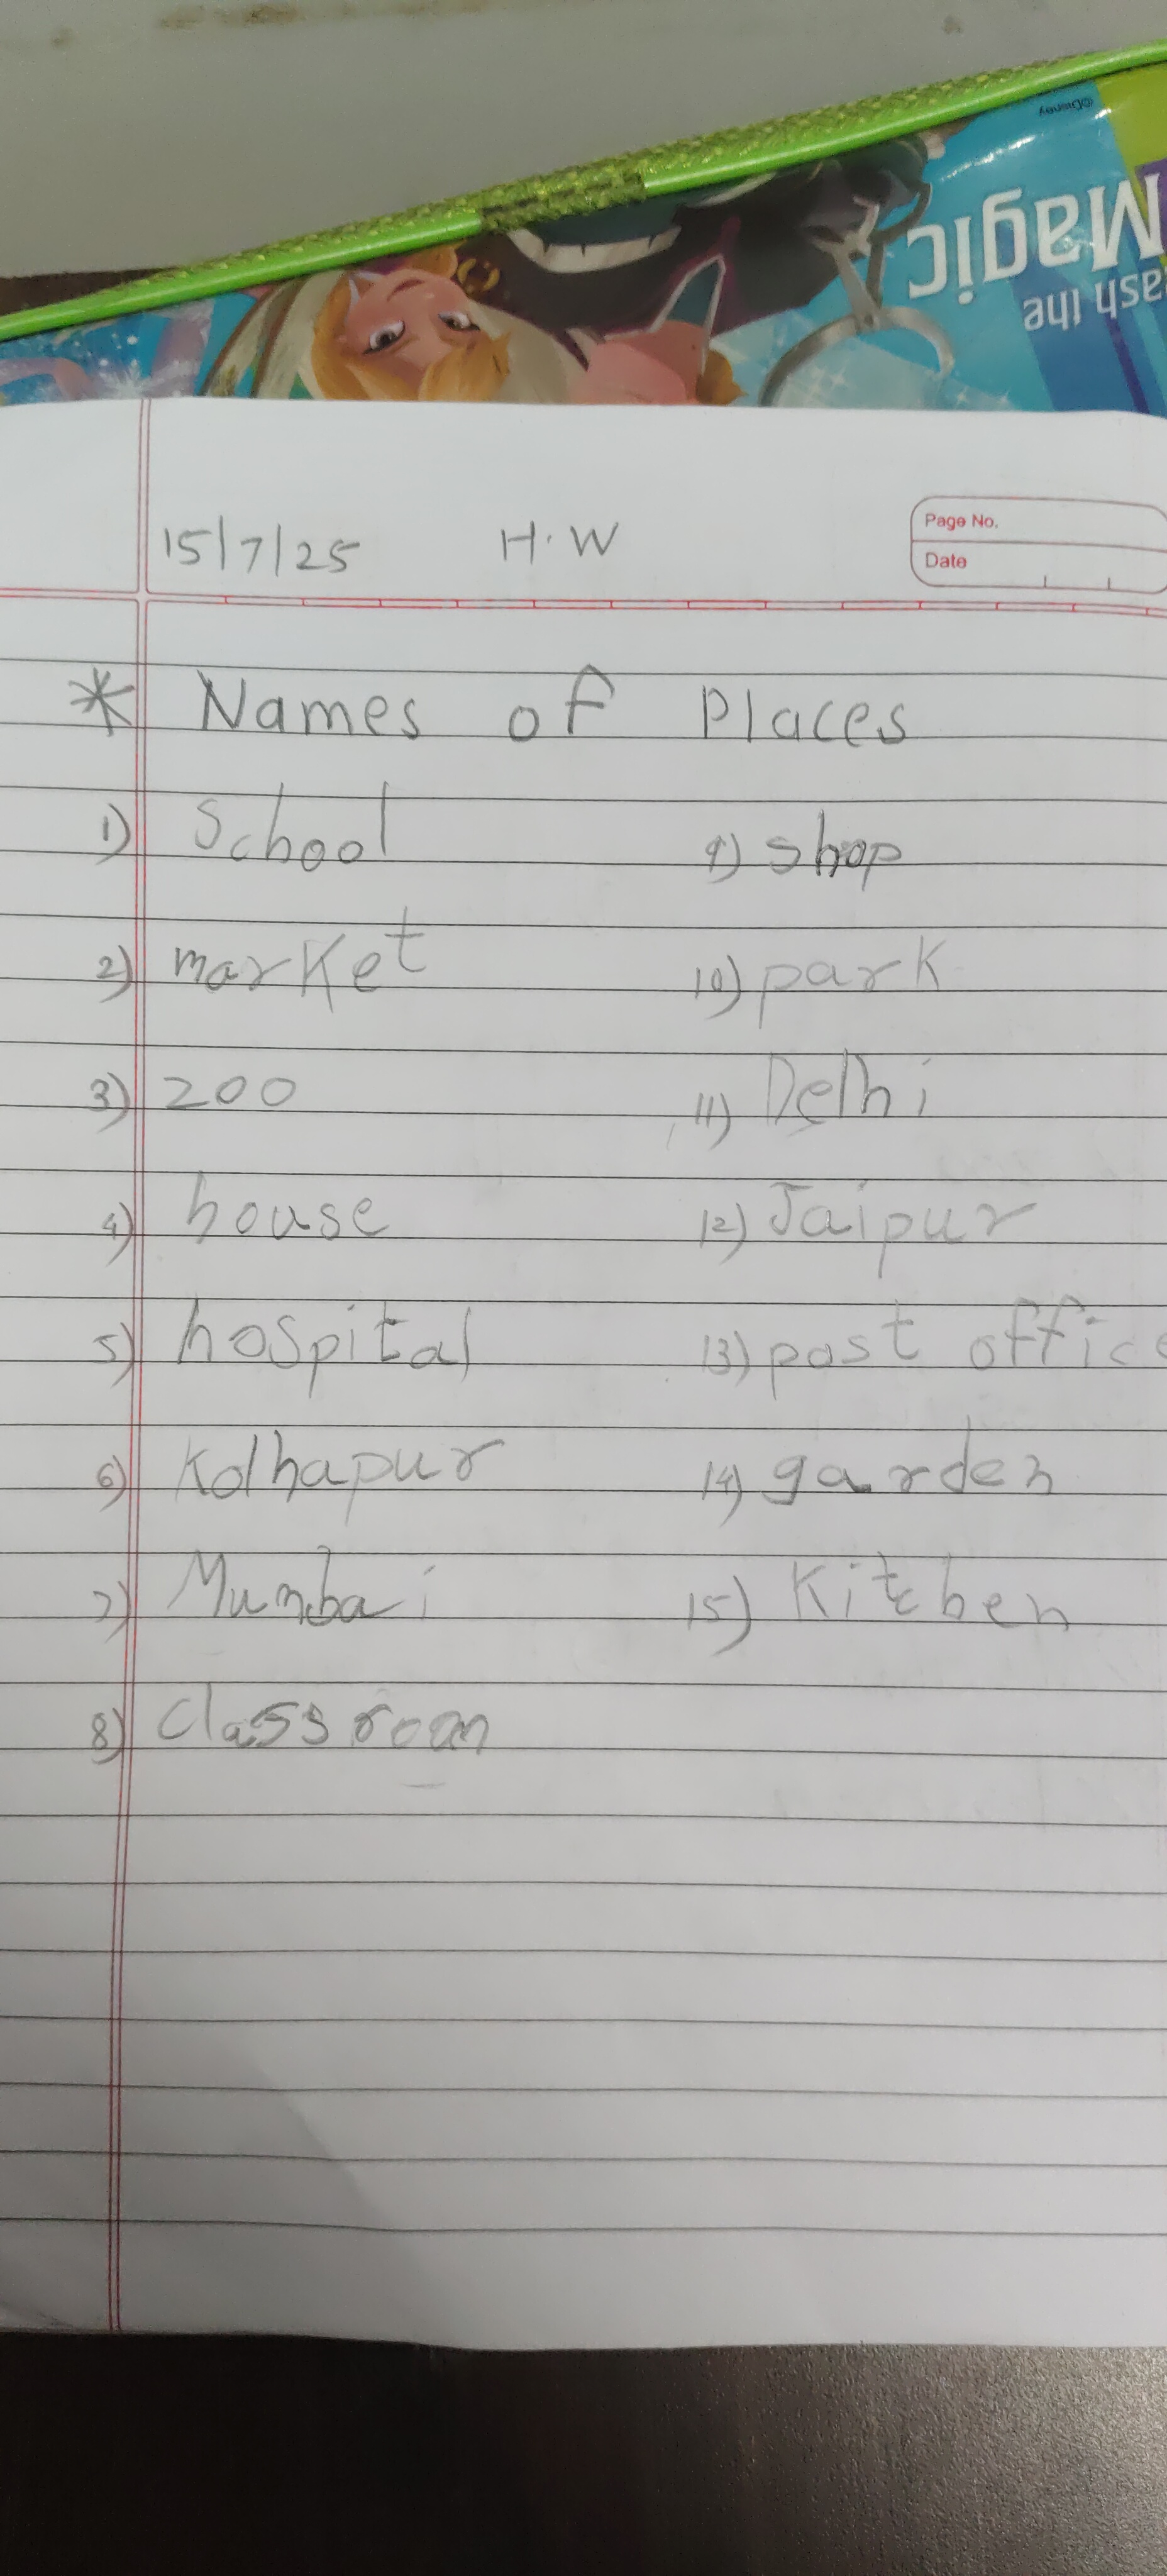 ©Disney
Magic
ash the
Page No.
Date
15/7/25 H.W
* Names of Places
1) School
2) market
3) zoo
4) house
5) hospital
6) Kolhapur
7) Mumbai
8) classroom
9) shop
10) park
11) Delhi
12) Jaipur
13) post office
14) garden
15) Kitchen